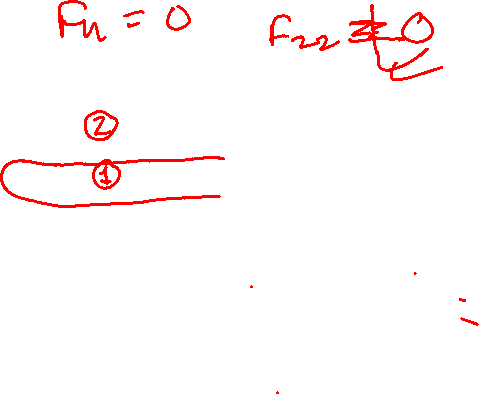 F₁₁ = 0 F₂₂ ≠ 0
②
①